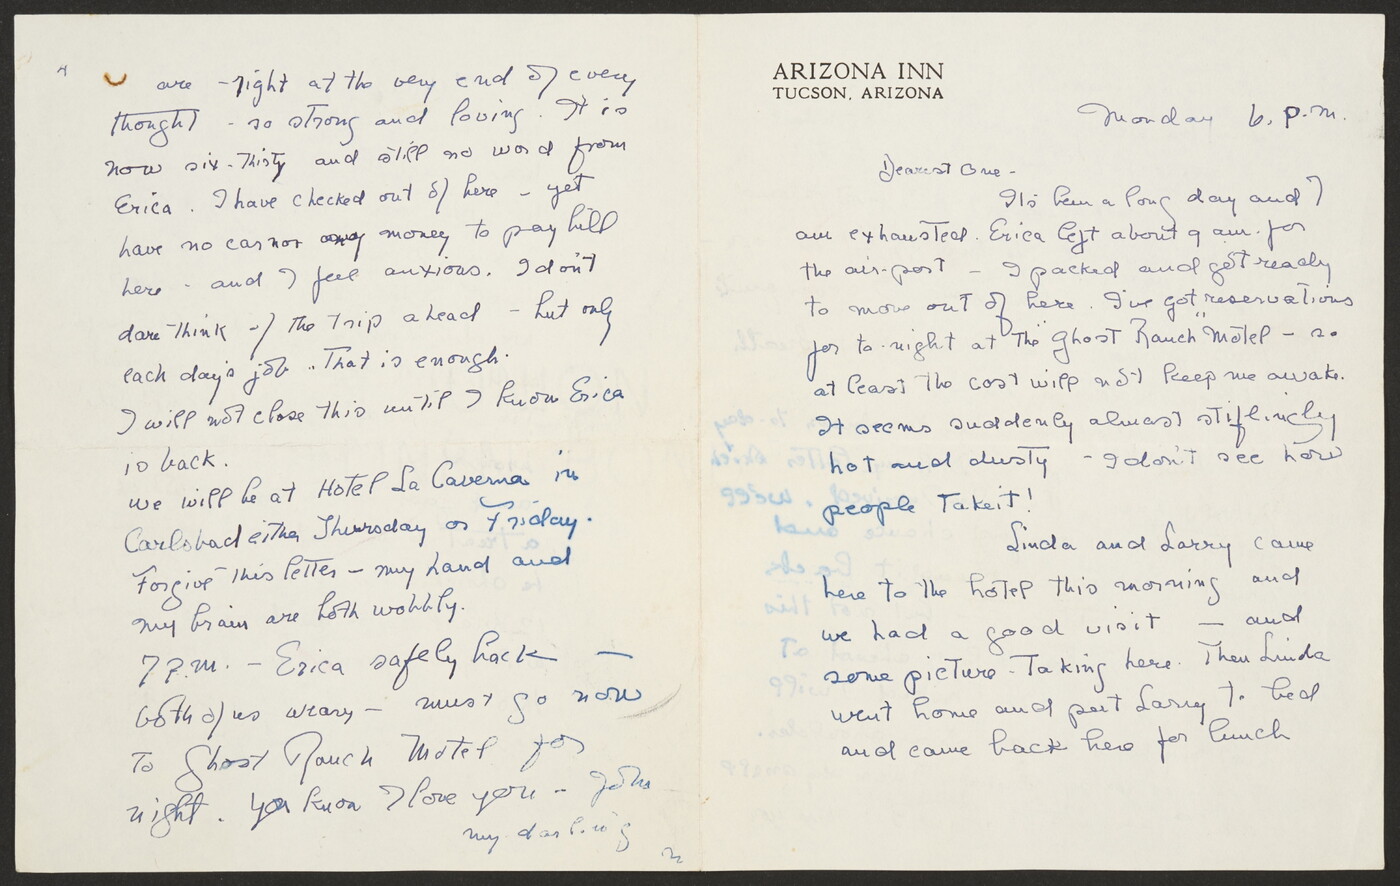 ARIZONA INN
TUCSON, ARIZONA
Monday 6. p.m.
Dearest One -
It's been a long day and I
am exhausted. Erica left about 9 am. for
the air-port - I packed and got ready
to move out of here. I've got reservations
for to-night at the "Ghost Ranch" Motel - so
at least the cost will not keep me awake.
It seems suddenly almost stiflingly
hot and dusty - I don't see how
people take it!
Linda and Larry came
here to the hotel this morning and
we had a good visit - and
some picture-taking here. Then Linda
went home and put Larry to bed
and came back here for lunch
4
are - right at the very end of every
thought - so strong and loving. It is
now six-thirty and still no word from
Erica. I have checked out of here - yet
have no car nor money to pay bill
here - and I feel anxious. I don't
dare think of the trip ahead - but only
each day's job. That is enough.
I will not close this until I know Erica
is back.
We will be at Hotel La Caverna in
Carlsbad either Thursday or Friday.
Forgive this letter - my hand and
my brain are both wobbly.
7 P.M. - Erica safely back -
both of us weary - must go now
to Ghost Ranch Motel for
night. You know I love you -
my darling